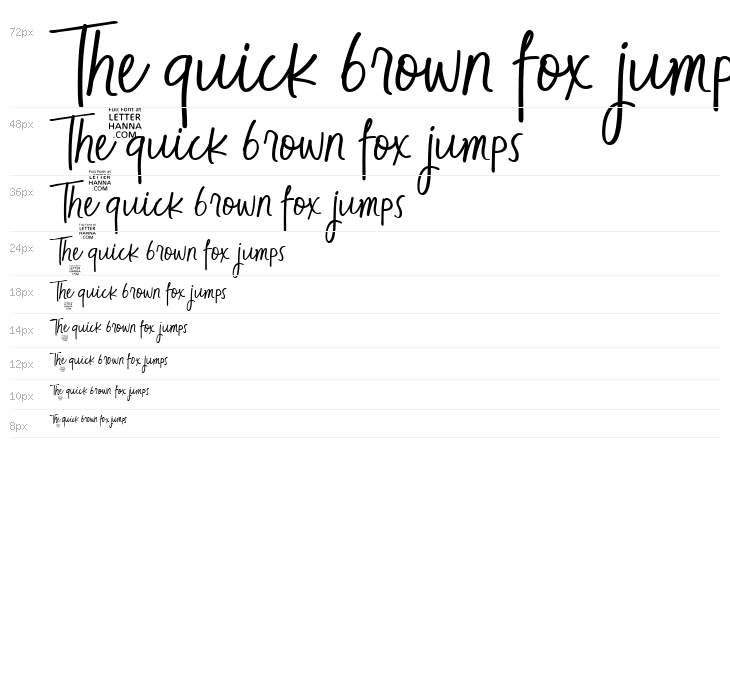 72px The quick brown fox jump
Full Font at
LETTER
HANNA
.COM
48px The quick brown fox jumps
Full Font at
LETTER
HANNA
.COM
36px The quick brown fox jumps
Full Font at
LETTER
HANNA
.COM
24px The quick brown fox jumps
18px The quick brown fox jumps
14px The quick brown fox jumps
12px The quick brown fox jumps
10px The quick brown fox jumps
8px The quick brown fox jumps